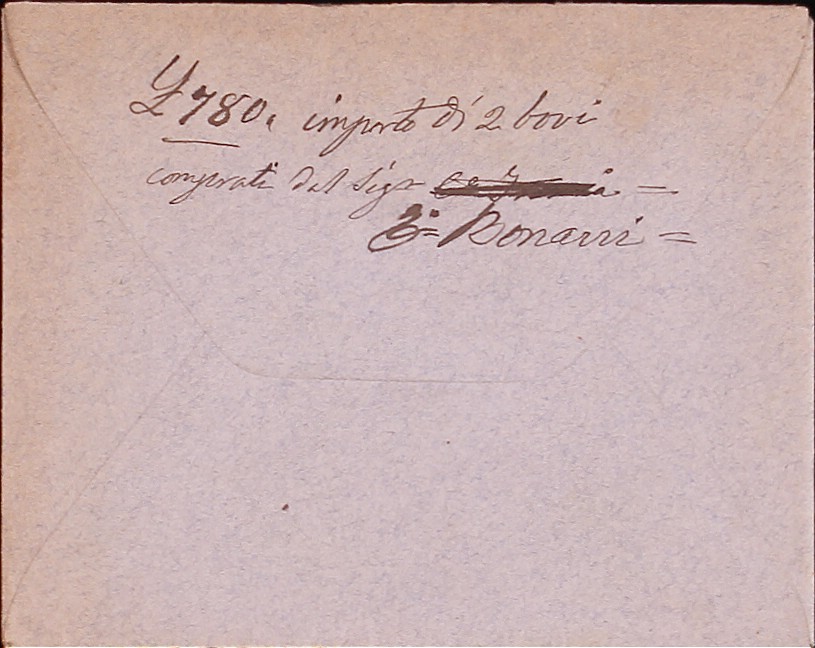 £ 780. importo di 2 bovi
comprati dal Sigr =
Bonarri =